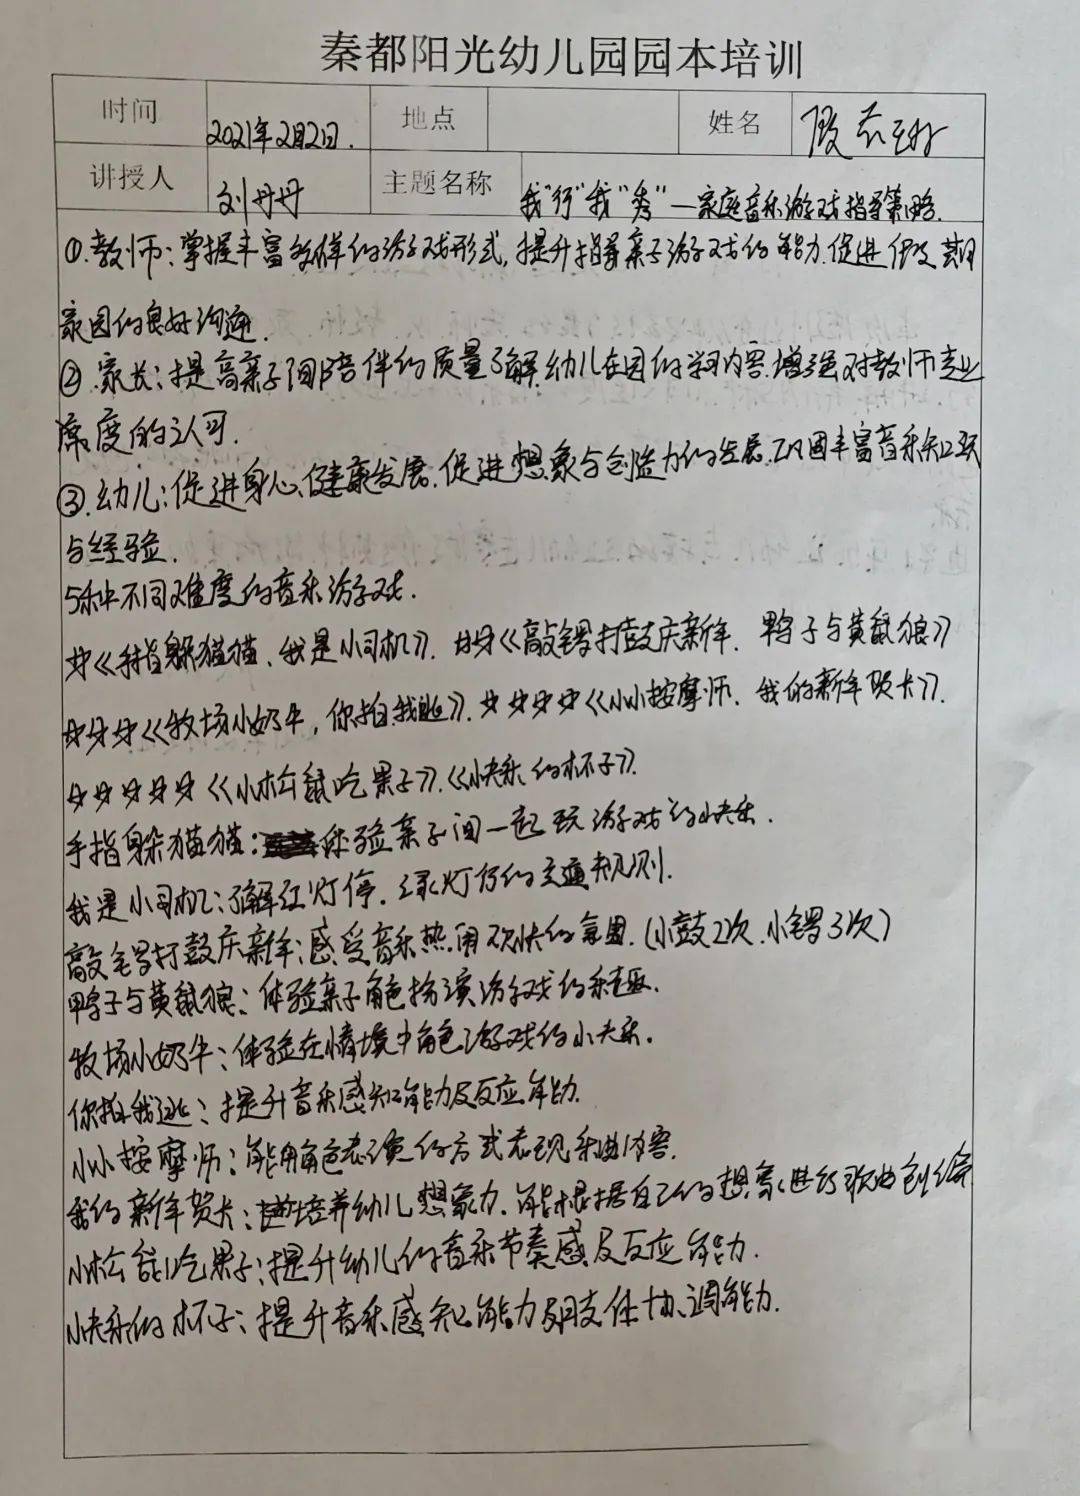 秦都阳光幼儿园园本培训
时间 2021年2月2日. 地点 姓名
讲授人 刘丹丹 主题名称 我"行"我"秀"—家庭音乐游戏指导策略.
①.教师:掌握丰富多样的游戏形式,提升指导亲子游戏的能力.促进假期
家园的良好沟通.
②.家长:提高亲子间陪伴的质量了解幼儿在园的学习内容.增强对教师专业
度的认可.
③.幼儿:促进身心健康发展.促进想象与创造力的发展.巩固丰富音乐知识
与经验.
5种不同难度的音乐游戏.
☆《手指躲猫猫、我是小司机》.☆☆《敲锣打鼓庆新年.鸭子与黄鼠狼》
☆☆☆《牧场小奶牛,你拍我逃》.☆☆☆☆《小小按摩师.我的新年贺卡》.
☆☆☆☆☆《小松鼠吃果子》.《快乐的杯子》.
手指躲猫猫:体验亲子间一起玩游戏的快乐.
我是小司机:了解红灯停.绿灯行的交通规则.
敲锣打鼓庆新年:感受音乐热闹欢快的氛围.(小鼓2次.小锣3次)
鸭子与黄鼠狼:体验亲子角色扮演游戏的乐趣.
牧场小奶牛:体验在情境中角色游戏的快乐.
你拍我逃:提升音乐感知能力及反应能力.
小小按摩师:能用角色表演的方式表现乐曲内容.
我的新年贺卡:培养幼儿想象力.能根据自己的想象进行歌曲创编
小松鼠吃果子:提升幼儿的音乐节奏感及反应能力.
快乐的杯子:提升音乐感知能力及肢体协调能力.